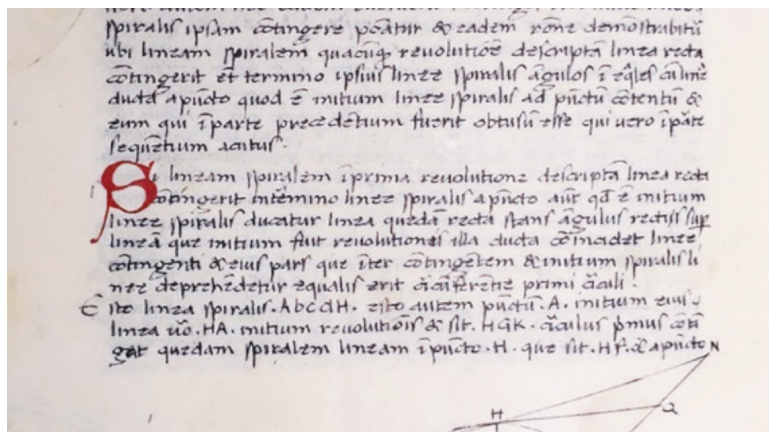 spiralis ipsam cōtingere ponatur & eadem rōne demōstrabitū
ubi lineam spiralem quacūq revolutiōe descriptā linea recta
cōtingerit et termino ipsius linee spiralis āgulos ī eq̄les cū līne
ducta a pūcto quod ē initium linee spiralis ad pūctū cōtentū &
eum qui ī parte precedētium fuerit obtusū esse qui vero ī pāte
sequētium acutus.
Si lineam spiralem ī prima revolutione descriptā linea recta
cōtingerit ī tēmino linee spiralis a pūcto aūt qđ ē initium
linee spiralis ducatur linea quedā recta stans āgulus rectis sup
lineā que initium fuit revolutionis illa ducta cōincidet linee
cōtingenti & eius pars que īter cōtingētem & initium spiralis li
nee deprehēdetur equalis erit cīcūferētie primi cīculi.
Esto linea spiralis. AbcdH. esto autem pūctū. A. initium eius.
linea ūo. HA. initium revolutiōis & sit. HGK. cīculus p̄mus cōti
gat quedam spiralem lineam ī pūcto. H. que sit. Hf. & a pūcto
N
H
Q